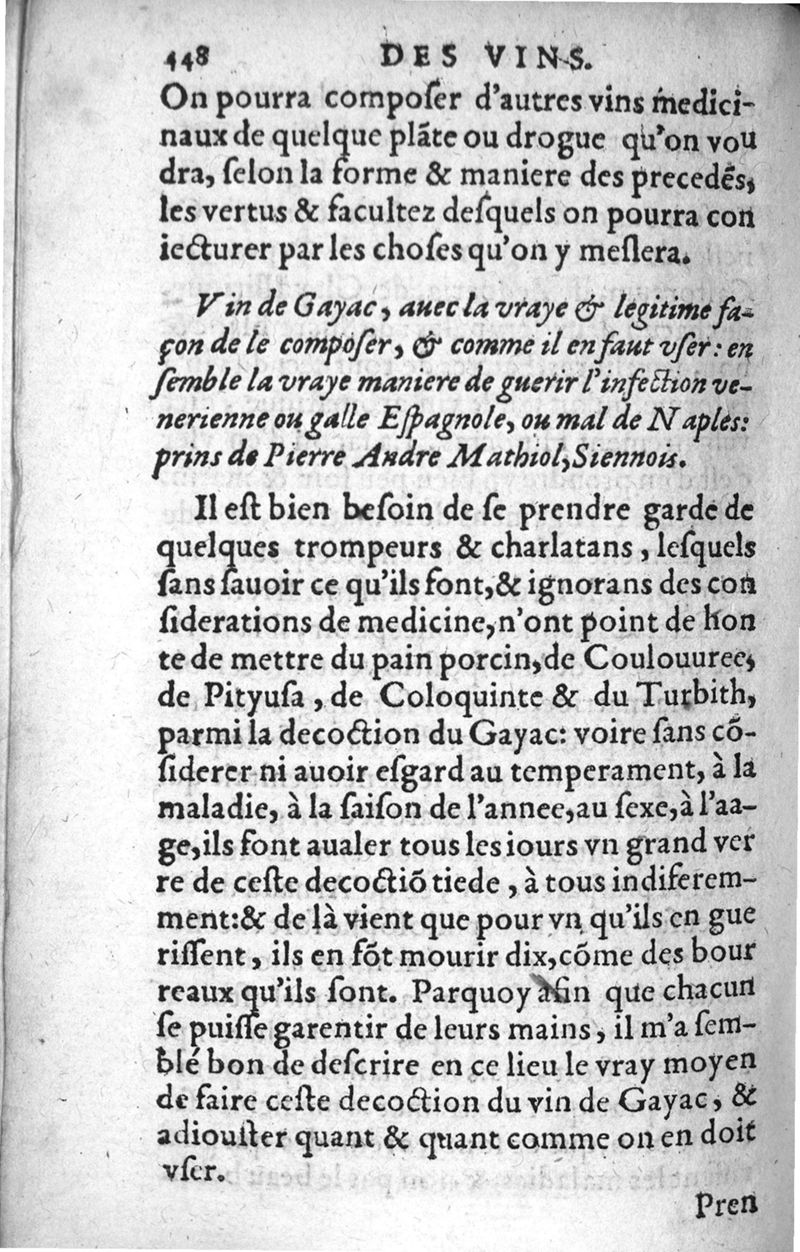 448 DES VINS.
On pourra compoſer d'autres vins medici-
naux de quelque plãte ou drogue qu'on vou
dra, ſelon la forme & maniere des precedẽs,
les vertus & facultez deſquels on pourra con
iecturer par les choſes qu'on y meſlera.
Vin de Gayac, auec la vraye & legitime fa-
çon de le compoſer, & comme il en faut vſer: en
ſemble la vraye maniere de guerir l'infection ve-
nerienne ou galle Eſpagnole, ou mal de Naples:
prins de Pierre Andre Mathiol, Siennois.
Il eſt bien beſoin de ſe prendre garde de
quelques trompeurs & charlatans, leſquels
ſans ſauoir ce qu'ils font, & ignorans des con
ſiderations de medicine, n'ont point de hon
te de mettre du pain porcin, de Coulouuree,
de Pityuſa, de Coloquinte & du Turbith,
parmi la decoction du Gayac: voire ſans cõ-
ſiderer ni auoir eſgard au temperament, à la
maladie, à la ſaiſon de l'annee, au ſexe, à l'aa-
ge, ils font aualer tous les iours vn grand ver
re de ceſte decoctiõ tiede, à tous indiferem-
ment: & de là vient que pour vn qu'ils en gue
riſſent, ils en fõt mourir dix, cõme des bour
reaux qu'ils ſont. Parquoy afin que chacun
ſe puiſſe garentir de leurs mains, il m'a ſem-
blé bon de deſcrire en ce lieu le vray moyen
de faire ceſte decoction du vin de Gayac, &
adiouſter quant & quant comme on en doit
vſer.
Pren